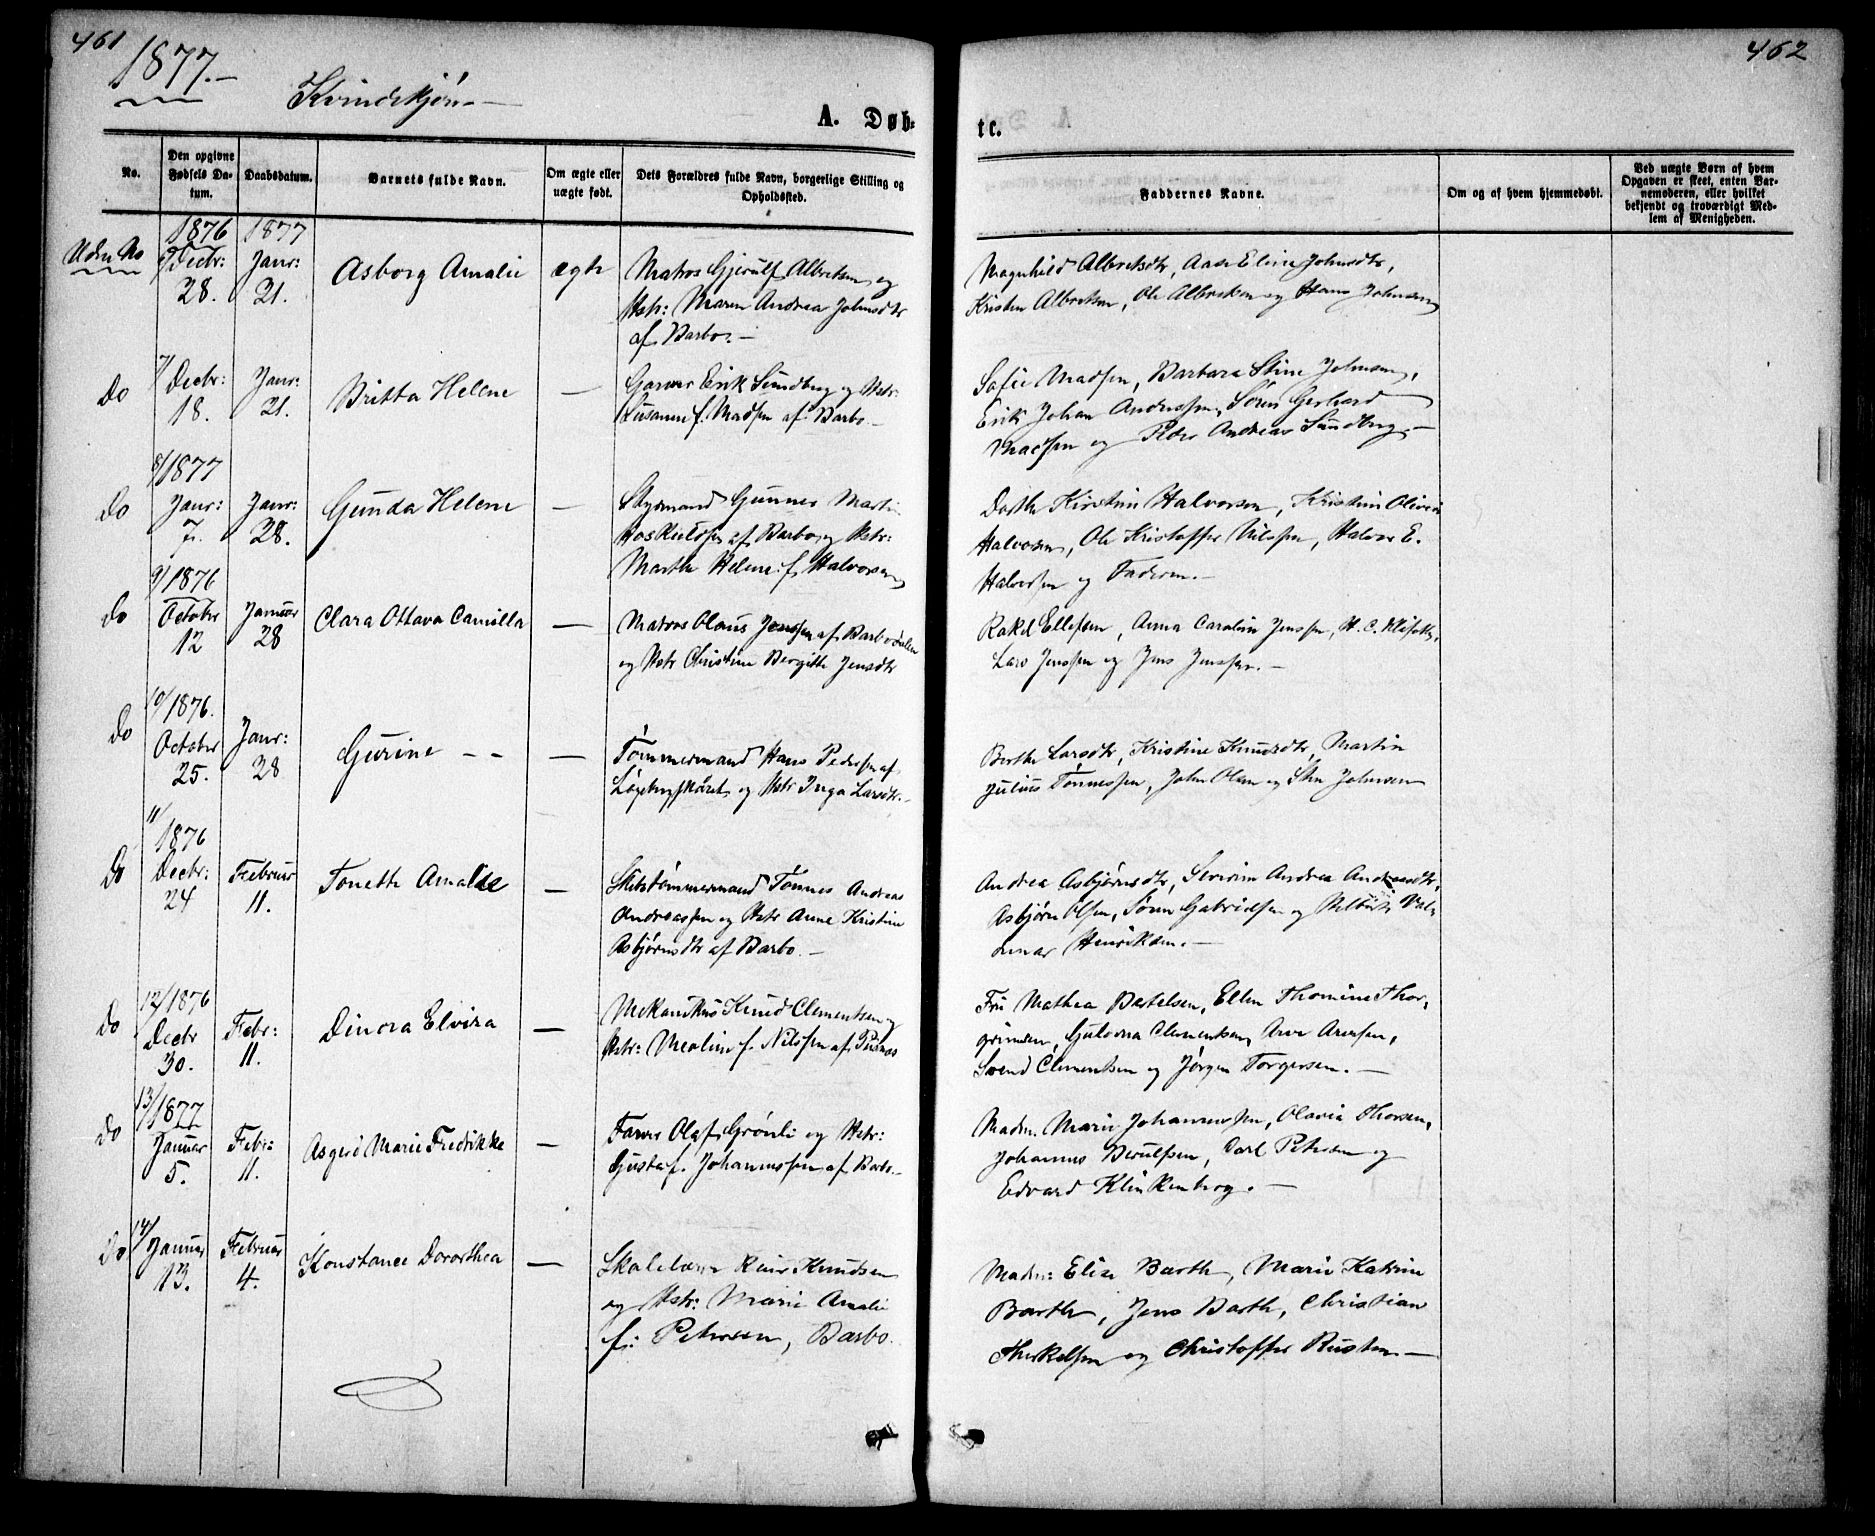 461
1877.-
Kvindekjøn
A. Døb-
No.
Den opgivne Fødsels Da-tum.
Daabsdatum.
Barnets fulde Navn.
Om ægte eller uægte født.
Dets Forældres fulde Navn, borgerlige Stilling og Opholdssted.
Uden No
6/
1876
Decbr:
28.
1877
Janr:
21.
Asborg Amalie
ægte
Matros Gjerulf Albretsen og
Hstr: Maren Andrea Johnsdtr
af Barbo.-
Do
7/
Decbr:
18.
Janr:
21.
Britta Helene
—
Garver Erik Sundberg og Hstr:
Susanne f. Madsen af Barbo.-
Do
8/1877
Janr:
7.
Janr:
28.
Gunda Helene
—
Styrmand Gunner Martin
af Barbo og Hstr:
Marthe Helene f. Halvorsen
Do
9/1876
October
12
Januar
28
Clara Ottava Camilla
—
Matros Olaus Jenssen af Barbodalen
og Hstr Christine Bergitte Jensdtr
Do
10/1876.
October
25.
Janr:
28
Gurine - -
—
Tømmermand Hans Pederssen af
og Hstr Inga Larsdtr.-
Do
11/1876
Decbr:
24
Februar
11.
Tonette Amalie
—
Skibstømmermand Tønnes Andreas
Andreassen og Hstr Anne Kristine
Asbjørnsdtr af Barbo.-
Do
12/1876
Decbr
30.
Febr:
11.
Dinora Elvira
—
Mekanikus Knud Clementsen og
Hstr: Mealine f. Nilssen af Pusnes
Do
13/1877
Januar
5.
Febr:
11.
Asgerd Marie Fredrikke
—
Farver Olaf Grønli og Hstr:
Gusta f. Johannessen af Barbo.-
Do
14/
Januar
13.
Februar
4.
Konstance Dororthea
—
Skolelærer Reier Knudsen
og Hstr: Marie Amalie
f: Petersen, Barbo.
462
tc.
Faddernes Navne.
Om og af hvem hjemmedøbt.
Ved uægte Børn af hvem Opgaven er skeet, enten Bar-nemoderen, eller hvilket bekjendt og troværdigt Med-lem af Menigheden.
Magnhild Albretsdtr, Aase Eline Johnsdtr,
Kristen Albretsen, Ole Albretsen og Hans Johnsen
Sofie Madsen, Barbara Stine Johnsen,
Erik Johan Anderssen, Søren Gerhard
Madsen og Peder Andreas Sundberg.-
Dorthe Kirstine Halvorsen, Kristine Olivie
Halvorsen, Ole Kristoffer Nilssen, Halvor E.
Halvorsen og Faderen.-
Rakel Ellefsen, Anna Caroline Jenssen, H. C.
Lars Jenssen og Jens Jenssen.-
Berthe Larsdtr, Kristine Knudsdtr, Martin
Julius Tønnessen, John Olsen og Sten Johnsen
Andrea Asbjørnsdtr, Severine Andrea Andreasdtr,
Asbjørn Olsen, Søren Gabrielsen og Val-
demar Henriksen.-
Fru Mathea Bertelsen, Ellen Thomine Thor-
grimsen, Clementsen, Arve Arnesen,
Svend Clementsen og Jørgen Torgersen.-
Madm. Marie Johannessen, Olavia Thorsen,
Johannes Berulfsen, Carl Petersen og
Edvard Klinkenberg.-
Madm: Elise Barth, Marie Katrine
Barth, Jens Barth, Christian
Therkelsen og Christoffer Rusten.-